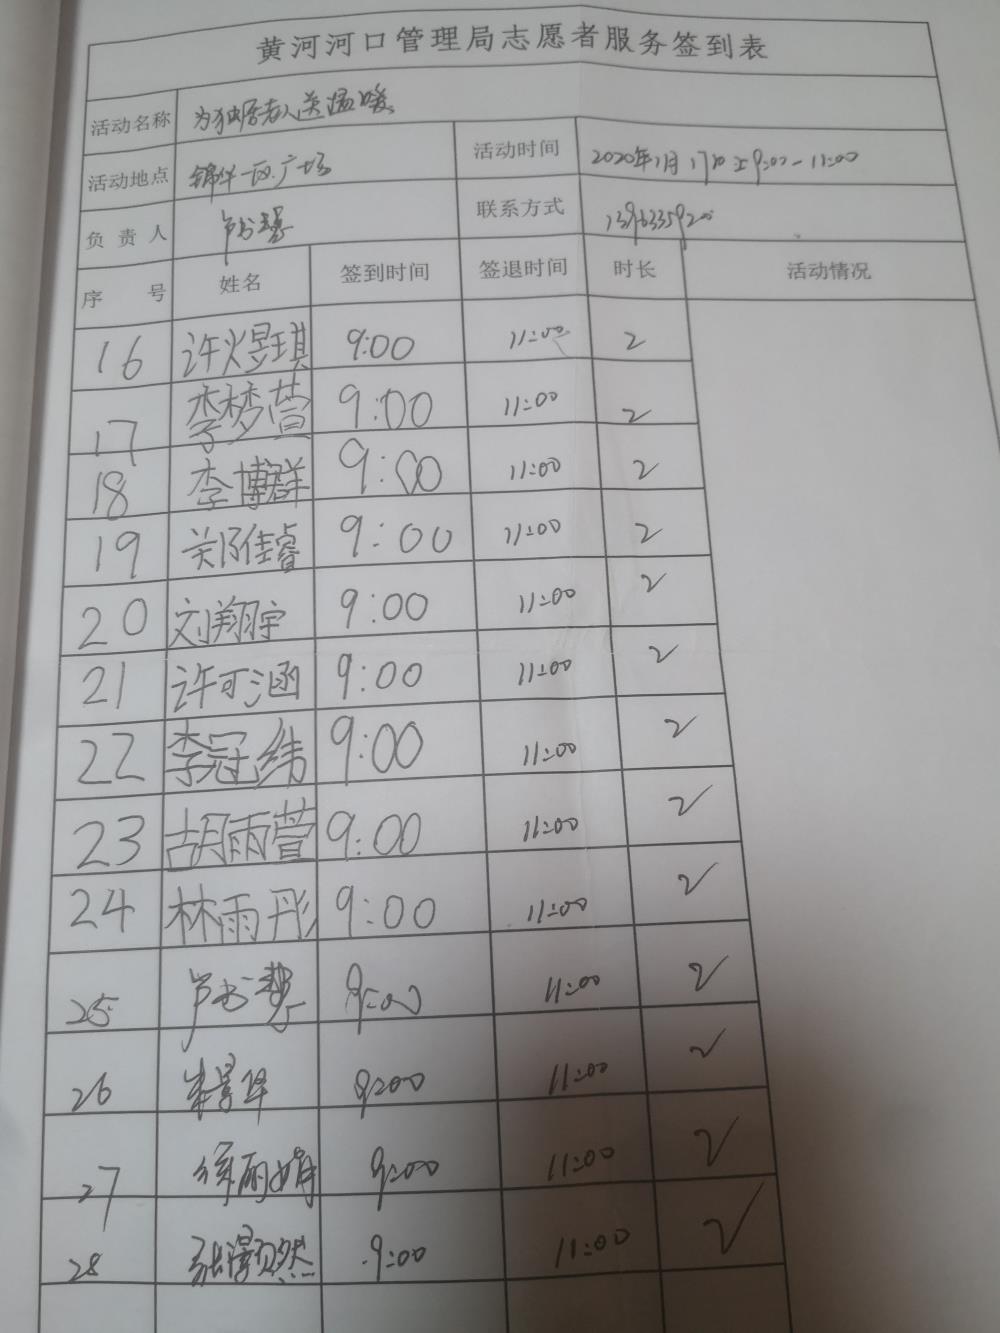 黄河河口管理局志愿者服务签到表
活动名称 为独居老人送温暖
活动地点 锦华一区广场 活动时间 2020年1月17日上9:00-11:00
负责人 联系方式
序号 姓名 签到时间 签退时间 时长 活动情况
16 许煜琪 9:00 11:00 2
17 李梦萱 9:00 11:00 2
18 李博群 9:00 11:00 2
19 关陈佳睿 9:00 11:00 2
20 刘翔宇 9:00 11:00 2
21 许可涵 9:00 11:00 2
22 李冠纬 9:00 11:00 2
23 胡雨萱 9:00 11:00 2
24 林雨彤 9:00 11:00 2
25 9:00 11:00 2
26 9:00 11:00 2
27 徐丽娟 9:00 11:00 2
28 9:00 11:00 2